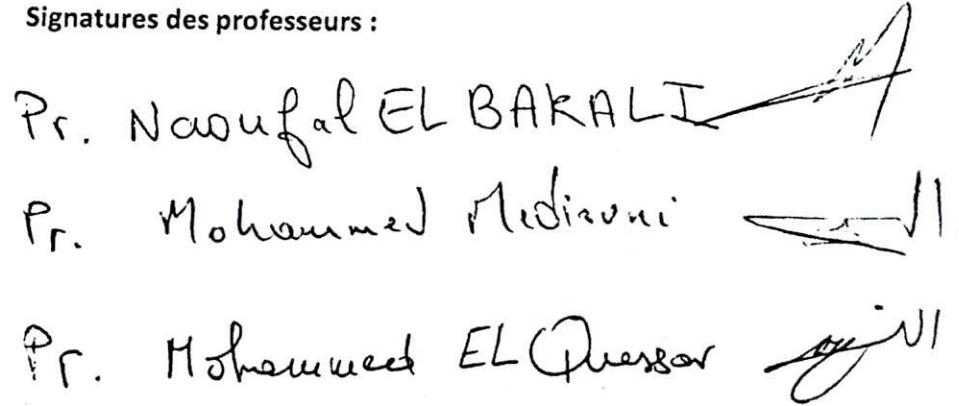 Signatures des professeurs :
Pr. Naoufal EL BAKALI
Pr. Mohammed Mediouni
Pr. Mohammed EL Quessar